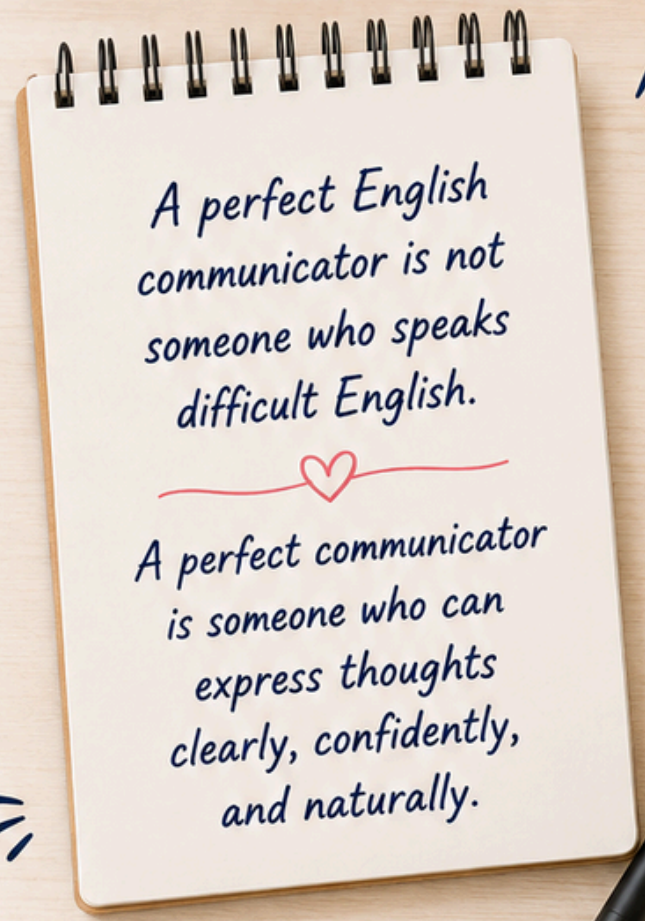 A perfect English
communicator is not
someone who speaks
difficult English.
A perfect communicator
is someone who can
express thoughts
clearly, confidently,
and naturally.